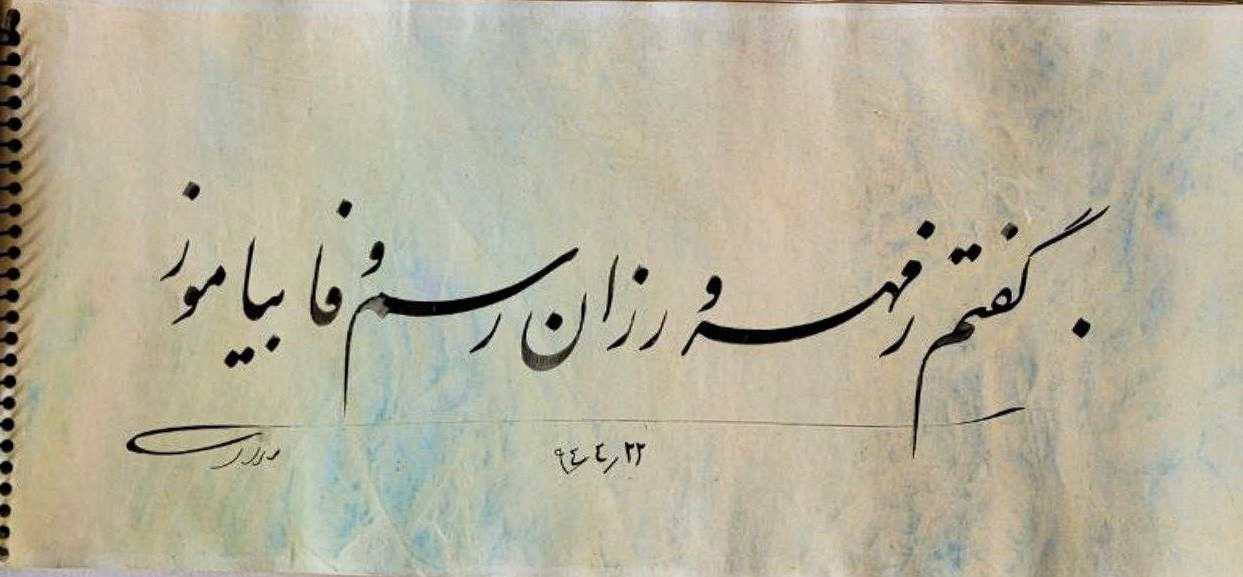 بگفتم ز مهرورزان رسم وفا بیاموز
۹۴٫۴٫۲۲